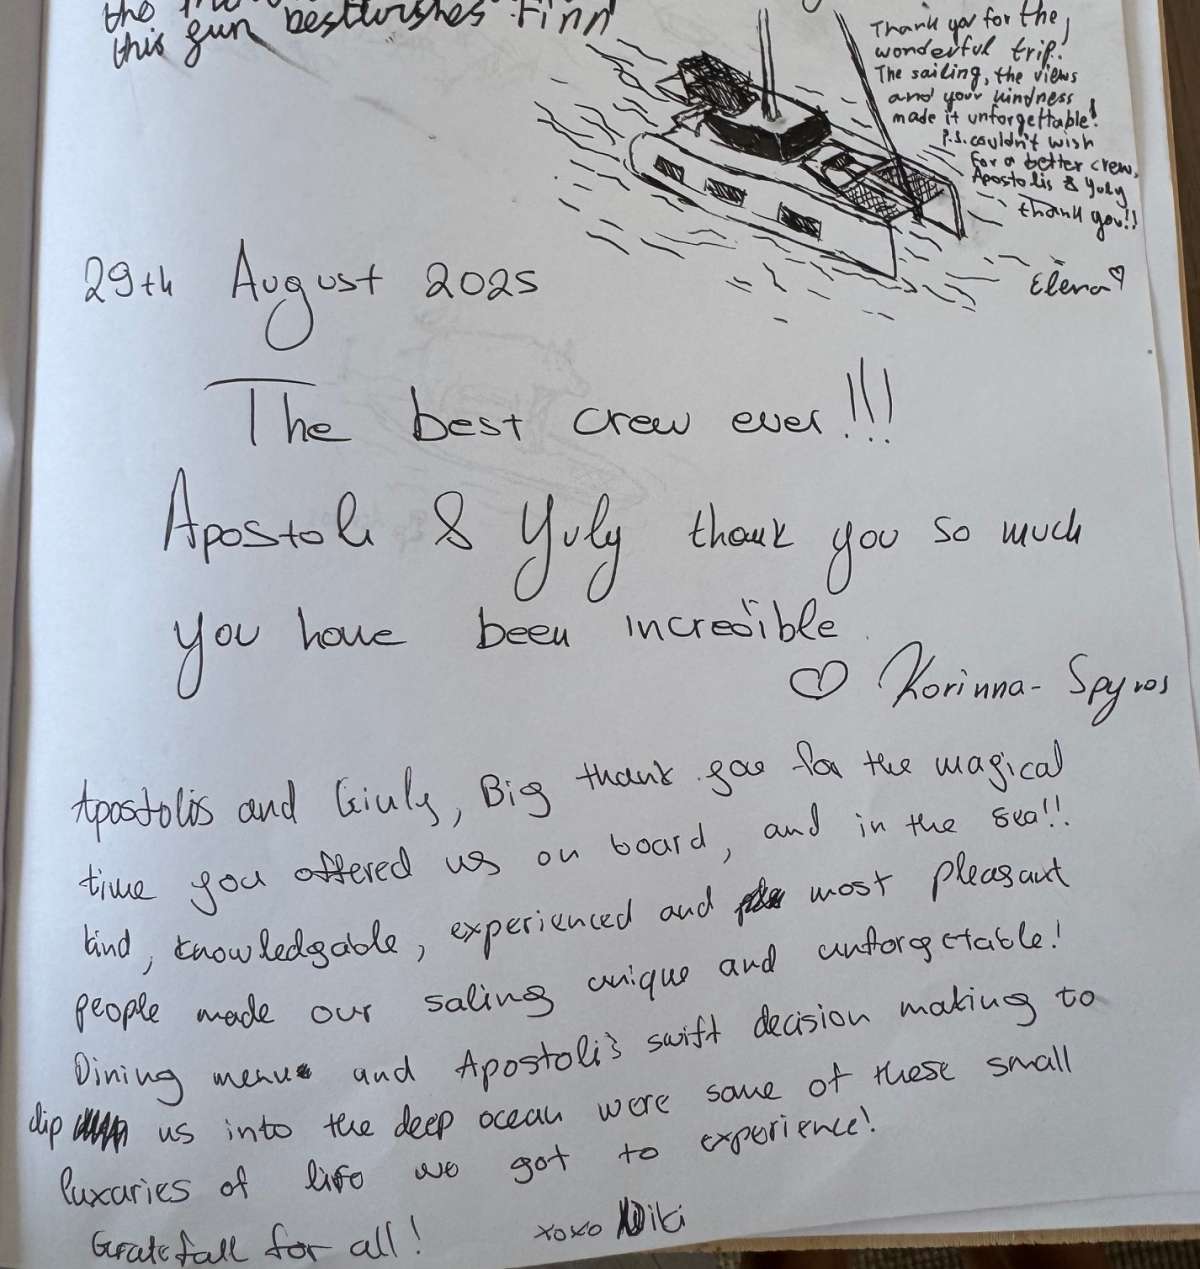 this fun bestwishes Finn
Thank you for the
wonderful trip!
The sailing, the views
and your kindness
made it unforgettable!
P.S. couldn't wish
for a better crew,
Apostolis & Yuly
thank you!!
Elena
29th August 2025
The best crew ever!!!
Apostoli & Yuly thank you so much
you have been incredible
Korinna - Spyros
Apostolis and Giuly, Big thank you for the magical
time you offered us on board, and in the sea!!
kind, knowledgable, experienced and most pleasant
people made our saling unique and unforgetable!
Dining menu and Apostoli's swift decision making to
dip us into the deep ocean were some of these small
luxaries of life we got to experience!
Gratefull for all!
xoxo Niki